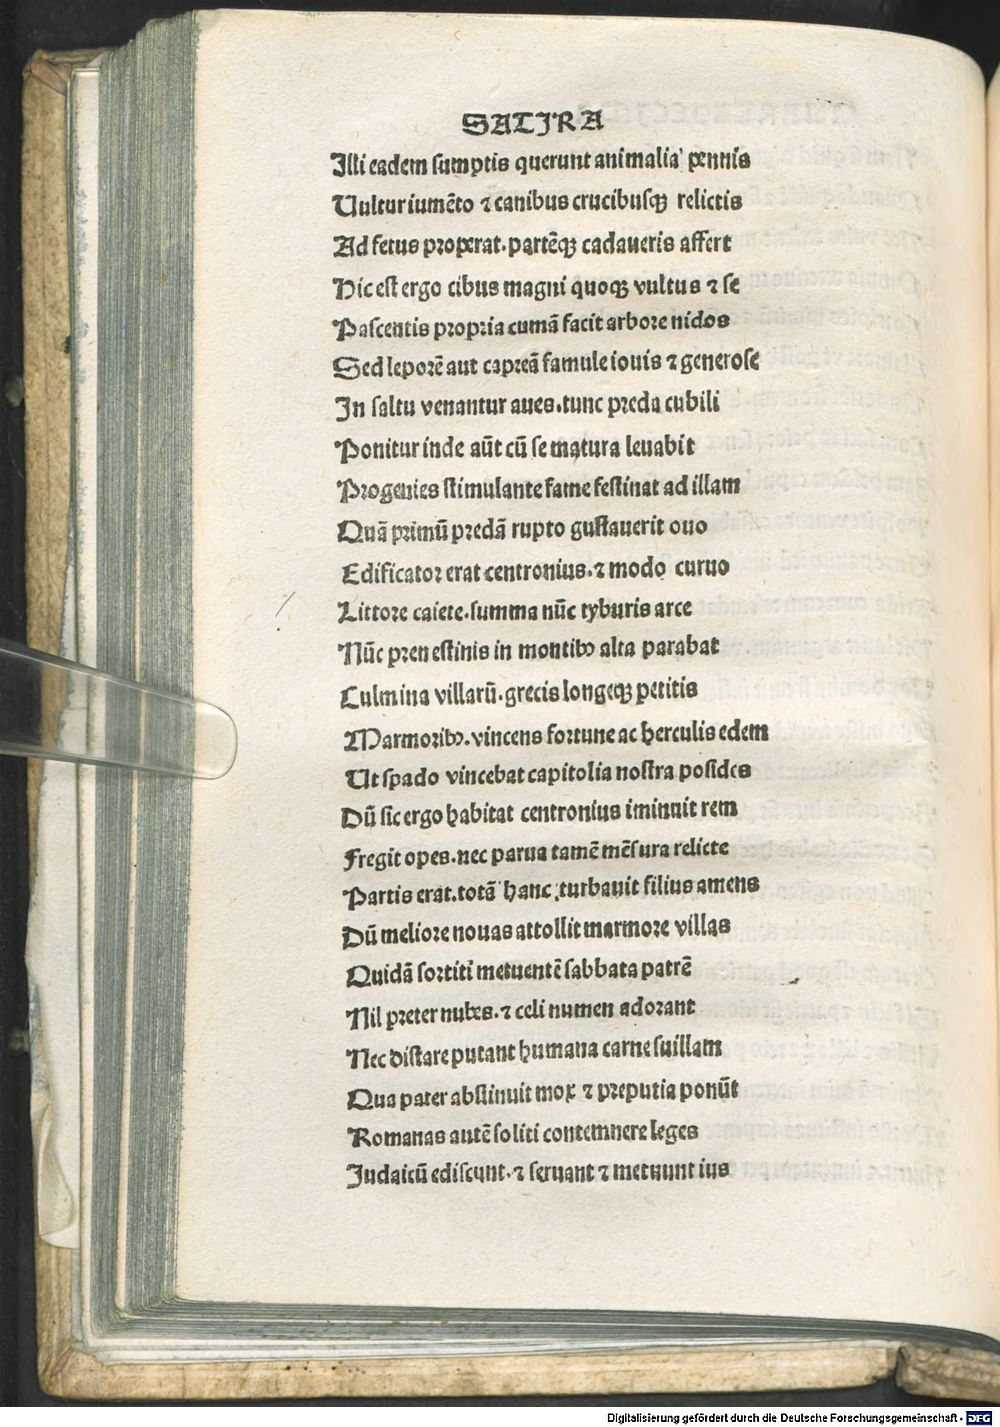 SATIRA
Illi eadem sumptis querunt animalia pennis
Vultur iumẽto ⁊ canibus crucibusqꝫ relictis
Ad fetus properat. partẽqꝫ cadaueris affert
Hic est ergo cibus magni quoqꝫ vultus ⁊ se
Pascentis propria cumã facit arbore nidos
Sed leporẽ aut capreã famule iouis ⁊ generose
In saltu venantur aues. tunc preda cubili
Ponitur inde aũt cũ se matura leuabit
Progenies stimulante fame festinat ad illam
Quã primũ predã rupto gustauerit ouo
Edificator erat centronius. ⁊ modo curuo
Littore caiete. summa nũc tyburis arce
Nũc prenestinis in montibꝫ alta parabat
Culmina villarũ. grecis longeqꝫ petitis
Marmoribꝫ. vincens fortune ac herculis edem
Ut spado vincebat capitolia nostra posides
Dũ sic ergo habitat centronius iminuit rem
Fregit opes. nec parua tamẽ mẽsura relicte
Partis erat. totã hanc turbauit filius amens
Dũ meliore nouas attollit marmore villas
Quidã sortiti metuentẽ sabbata patrẽ
Nil preter nubes. ⁊ celi numen adorant
Nec distare putant humana carne suillam
Qua pater abstinuit mox ⁊ preputia ponũt
Romanas autẽ soliti contemnere leges
Judaicũ ediscunt. ⁊ seruant ⁊ metuunt ius
Digitalisierung gefördert durch die Deutsche Forschungsgemeinschaft - DFG